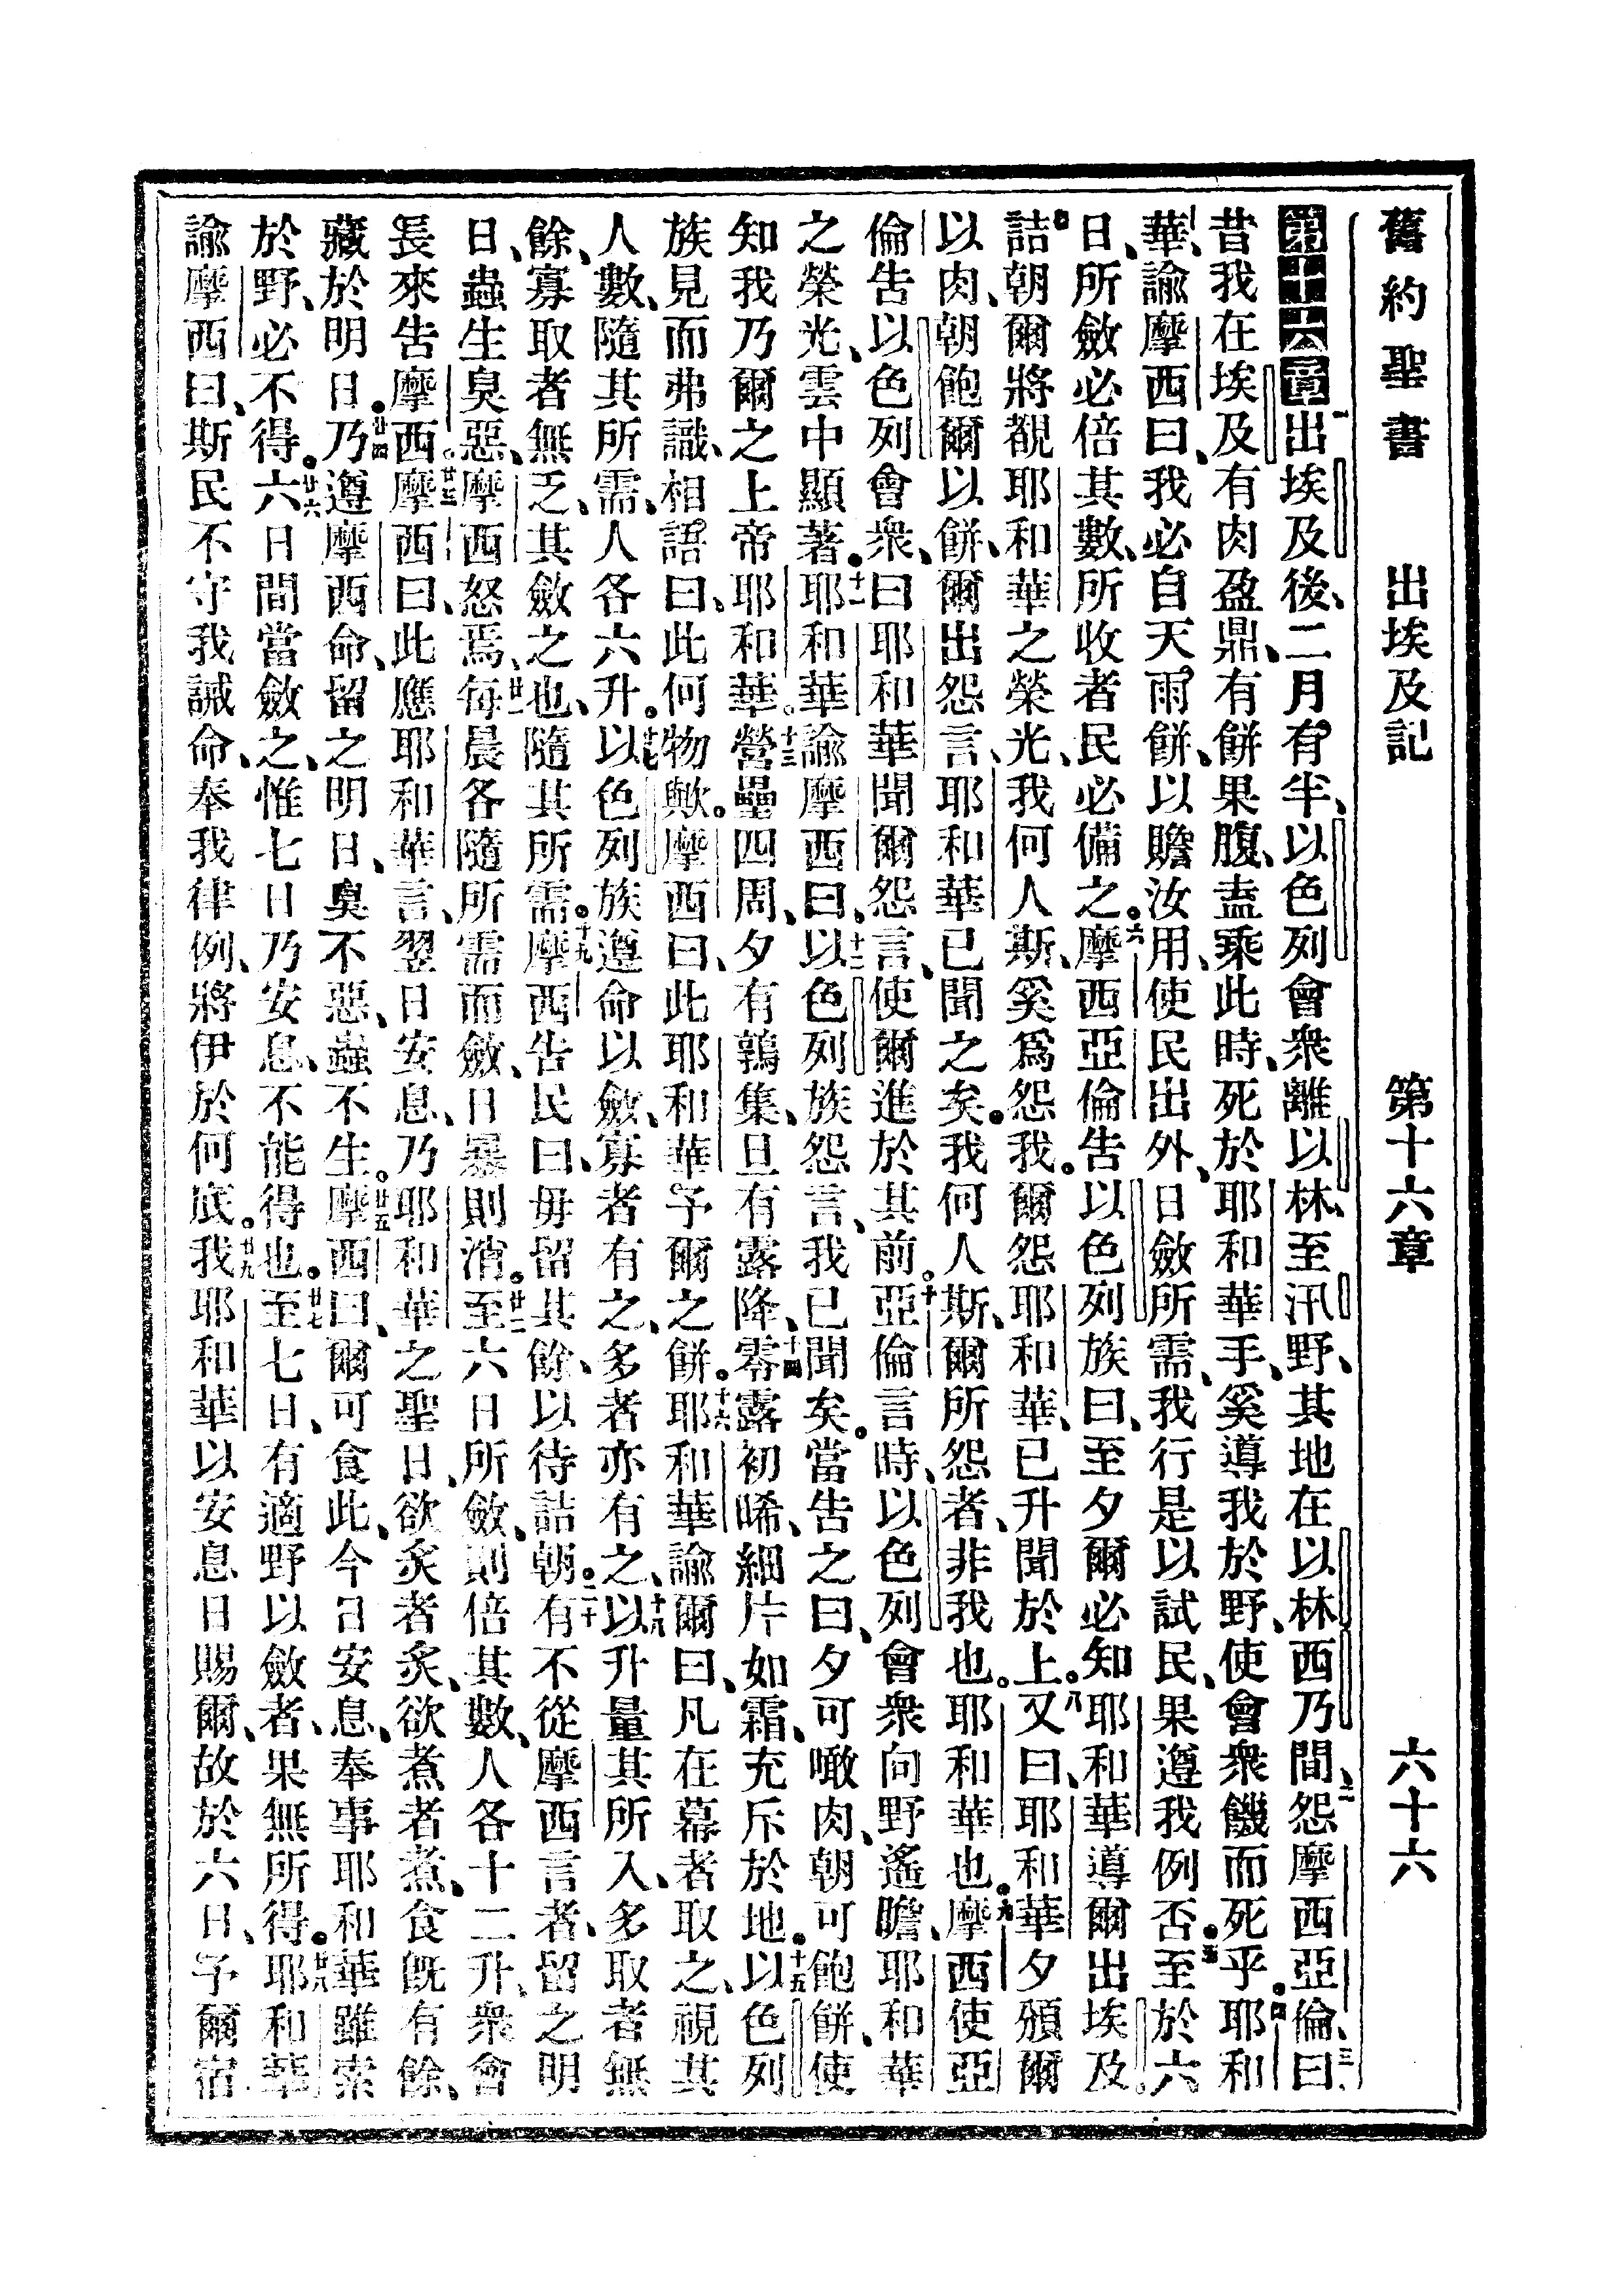 舊約聖書 出埃及記 第十六章 六十六
第十六章一出埃及後、二月有半、以色列會衆離以林、至汛野、其地在以林西乃間、二怨摩西亞倫、三曰、
昔我在埃及、有肉盈鼎、有餅果腹、盍乘此時、死於耶和華手、奚導我於野、使會衆饑而死乎。四耶和
華諭摩西曰、我必自天雨餅、以贍汝用、使民出外、日斂所需、我行是以試民、果遵我例否。五至於六
日、所斂必倍其數、所收者民必備之。六摩西亞倫告以色列族曰、至夕爾必知耶和華導爾出埃及。
七詰朝爾將覩耶和華之榮光、我何人斯、奚爲怨我。爾怨耶和華、已升聞於上。八又曰、耶和華夕頒爾
以肉、朝飽爾以餅、爾出怨言、耶和華已聞之矣。我何人斯、爾所怨者、非我也。耶和華也。九摩西使亞
倫告以色列會衆、曰耶和華聞爾怨言、使爾進於其前。十亞倫言時、以色列會衆向野遙瞻、耶和華
之榮光、雲中顯著。十一耶和華諭摩西曰、十二以色列族怨言、我已聞矣。當告之曰、夕可噉肉、朝可飽餅、使
知我乃爾之上帝耶和華。十三營壘四周、夕有鶉集、旦有露降、十四零露初晞、細片如霜、充斥於地。十五以色列
族見而弗識、相語曰、此何物歟。摩西曰、此耶和華予爾之餅。十六耶和華諭爾曰、凡在幕者取之、視其
人數、隨其所需、人各六升。十七以色列族遵命以斂、寡者有之、多者亦有之、十八以升量其所入、多取者無
餘、寡取者無乏、其斂之也、隨其所需。十九摩西告民曰、毋留其餘、以待詰朝。二十有不從摩西言者、留之明
日、蟲生臭惡、摩西怒焉、廿一每晨各隨所需而斂、日暴則消。廿二至六日所斂、則倍其數、人各十二升、衆會
長來告摩西。廿三摩西曰、此應耶和華言、翌日安息、乃耶和華之聖日、欲炙者炙、欲煮者煮、食旣有餘、
藏於明日。廿四乃遵摩西命、留之明日、臭不惡、蟲不生。廿五摩西曰、爾可食此、今日安息、奉事耶和華、雖索
於野、必不得。廿六六日間當斂之、惟七日乃安息、不能得也。廿七至七日、有適野以斂者、果無所得。廿八耶和華
諭摩西曰、斯民不守我誡命、奉我律例、將伊於何底。廿九我耶和華以安息日賜爾、故於六日、予爾宿